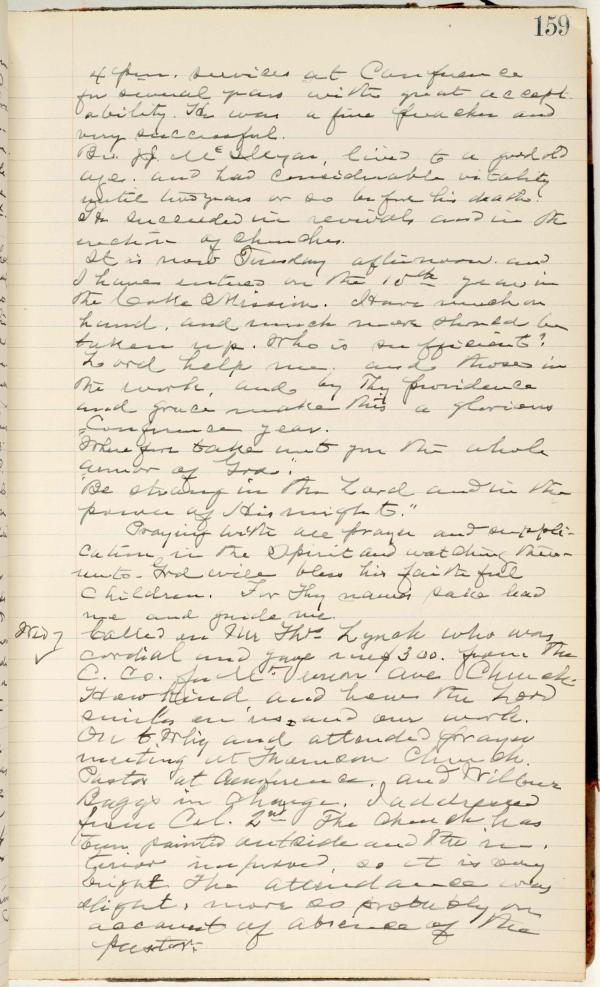 159
4 p.m. services at Conference
for several years with great accept-
ability. He was a fine preacher and
very successful.
Bro. J.J. McIlyar, lived to a good old
age. and had considerable vitality
until two years or so before his death.
He succeeded in revivals and in the
erection of churches.
It is now Tuesday afternoon. and
I have entered on the 10th year in
the Coke Mission. Have much on
hand, and much more should be
taken up. Who is sufficient?
Lord help me. and those in
the work, and by Thy providence
and grace make this a glorious
Conference year.
"Wherefore take unto you the whole
armor of God".
"Be strong in the Lord and in the
power of His might."
Praying with all prayer and suppli-
cation, in the Spirit and watching there-
unto - God will bless his faithful
children. For Thy name's sake lead
me and guide me.
Wed 7 Called on Mr Thos. Lynch who was
cordial and gave me $300. from the
C. Co. for Mt Vernon Ave Church.
How kind and how the Lord
smiles on us and our work.
On to Whig and attended prayer
meeting at Thomson Church.
Pastor at Conference, and Wilbur
Baggs in charge. I addressed
from Col. 2nd The church has
been painted outside and the in-
terior improved, so it is very
bright The attendance was
slight, more so probably on
account of absence of the
pastor.